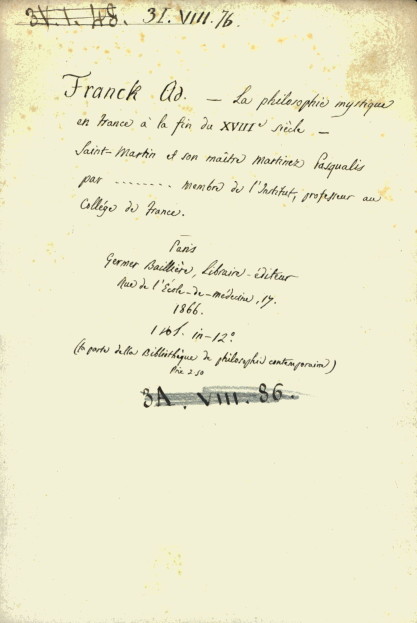 3V. I. 48. 3I. VIII. 76.
Franck Ad. — La philosophie mystique
en France à la fin du XVIIIe siècle —
Saint-Martin et son maître Martinez Pasqualis
par ........ membre de l'Institut, professeur au
Collège de France.
Paris
Germer Baillière, Libraire-éditeur
Rue de l'École-de-médecine, 17.
1866.
1 vol. in-12°.
(fa parte della Bibliothèque de philosophie contemporaine)
Prix 2.50
3A. VIII. 86.